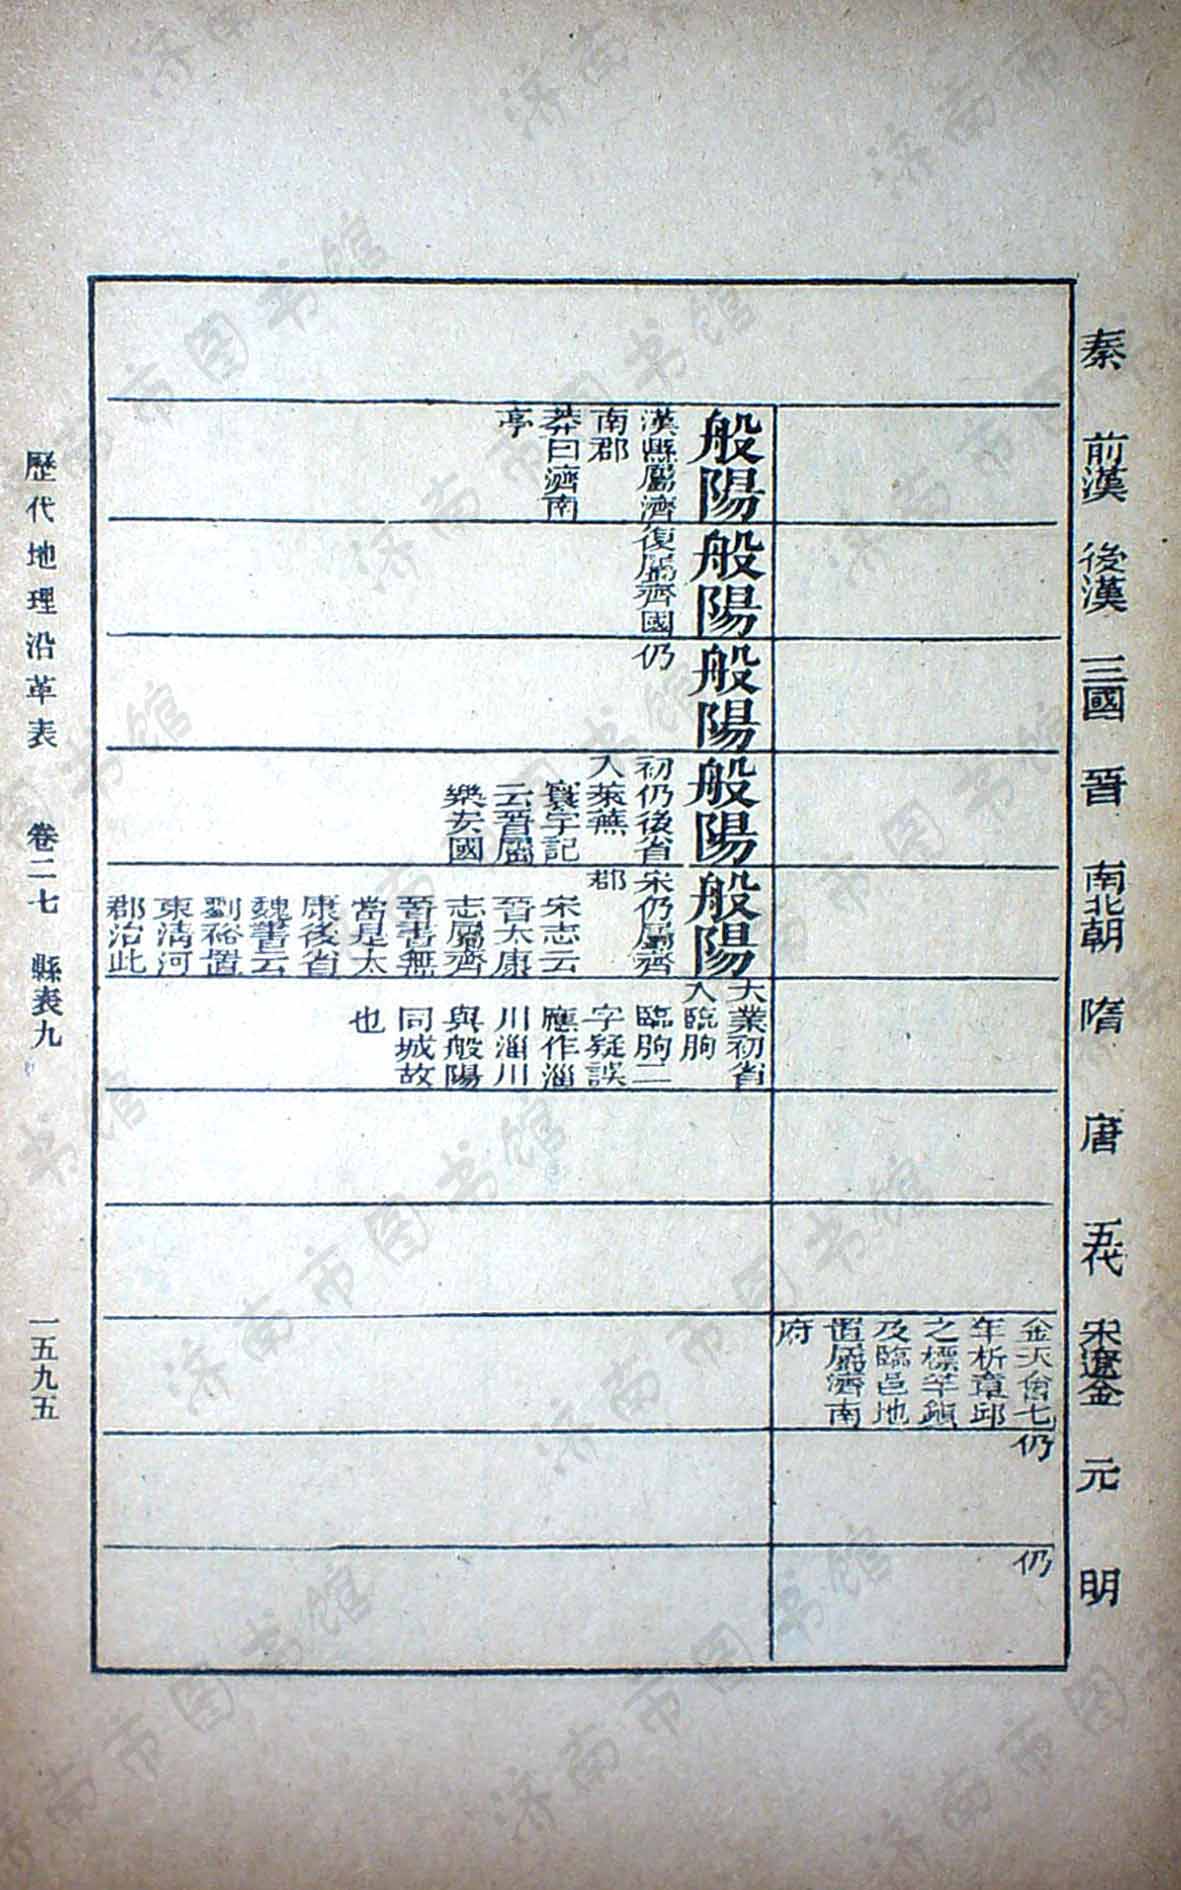 秦
前漢
後漢
三國
晉
南北朝
隋
唐
五代
宋遼金
元
明
金天會七
年析章邱
之標竿鎮
及臨邑地
置屬濟南
府
仍
仍
般陽
漢縣屬濟
南郡
莽曰濟南
亭
般陽
復屬齊國
般陽
仍
般陽
初仍後省
入萊蕪
寰宇記
云晉屬
樂安國
般陽
宋仍屬齊
郡
宋志云
晉太康
志屬齊
晉書無
當是太
康後省
魏書云
劉裕置
東清河
郡治此
大業初省
入臨朐
臨朐二
字疑誤
應作淄
川淄川
與般陽
同城故
也
歷代地理沿革表 卷二七 縣表九 一五九五
济南市图书馆